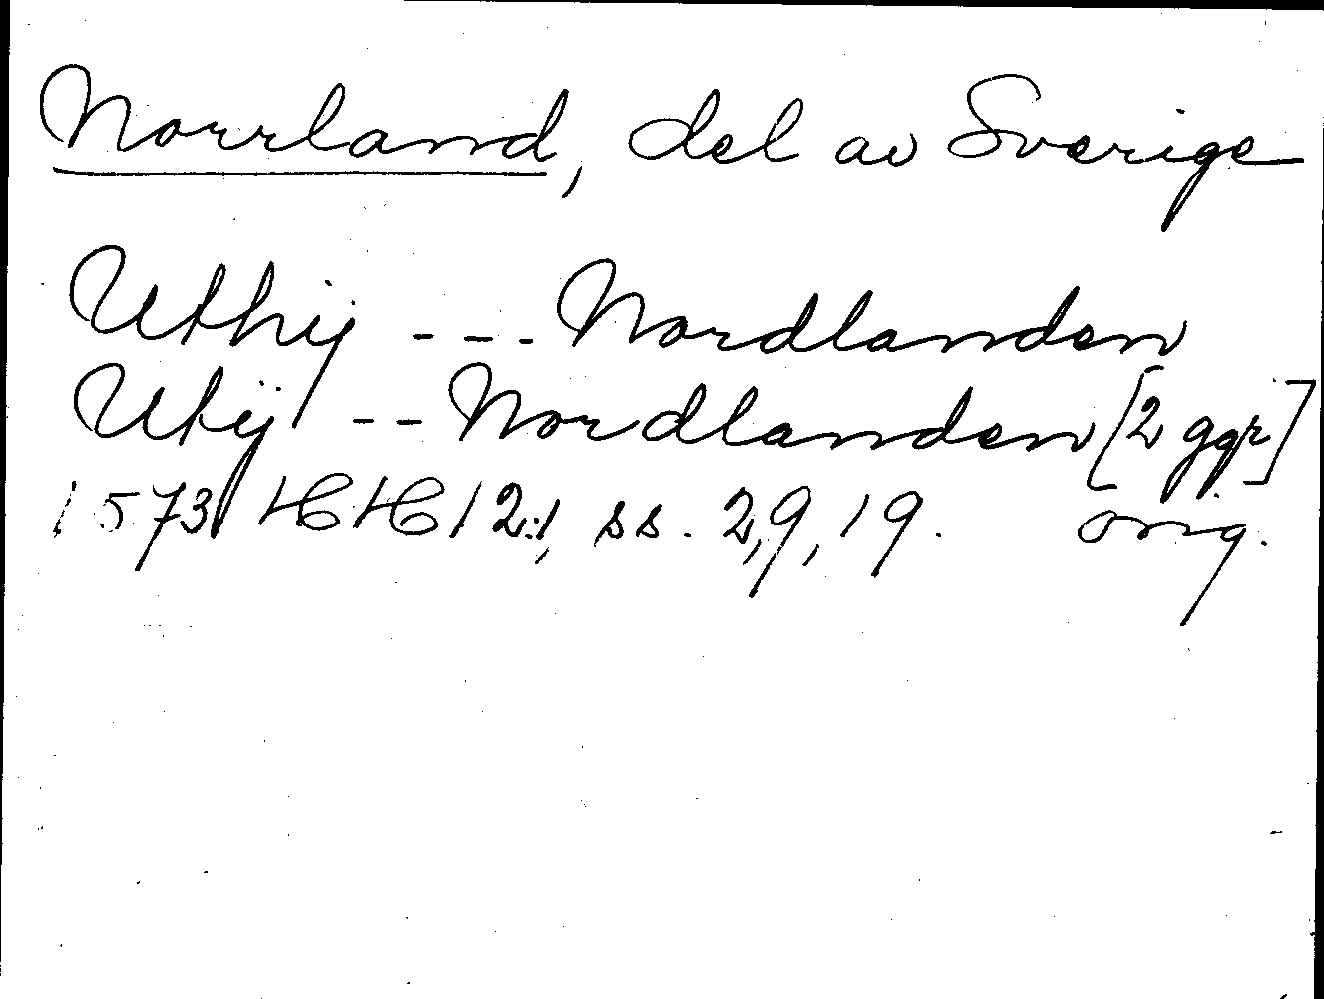 Norrland, del av Sverige
Uthij --- Nordlanden
Utij -- Nordlanden [2 ggr]
1573 HH 12:1, ss. 2, 9, 19. orig.